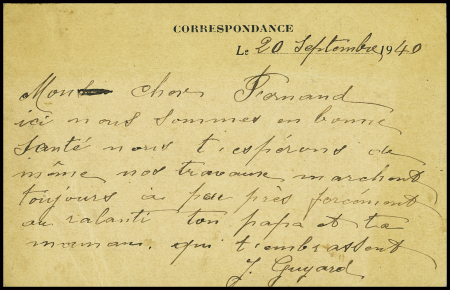 CORRESPONDANCE
Le 20 Septembre 1940
Mon cher Fernand
ici nous sommes en bonne
santé nous t'espérons de
même nos travaux marchent
toujours à peu près forcément
au ralanti ton papa et ta
maman qui t'embrassent
J. Guyard